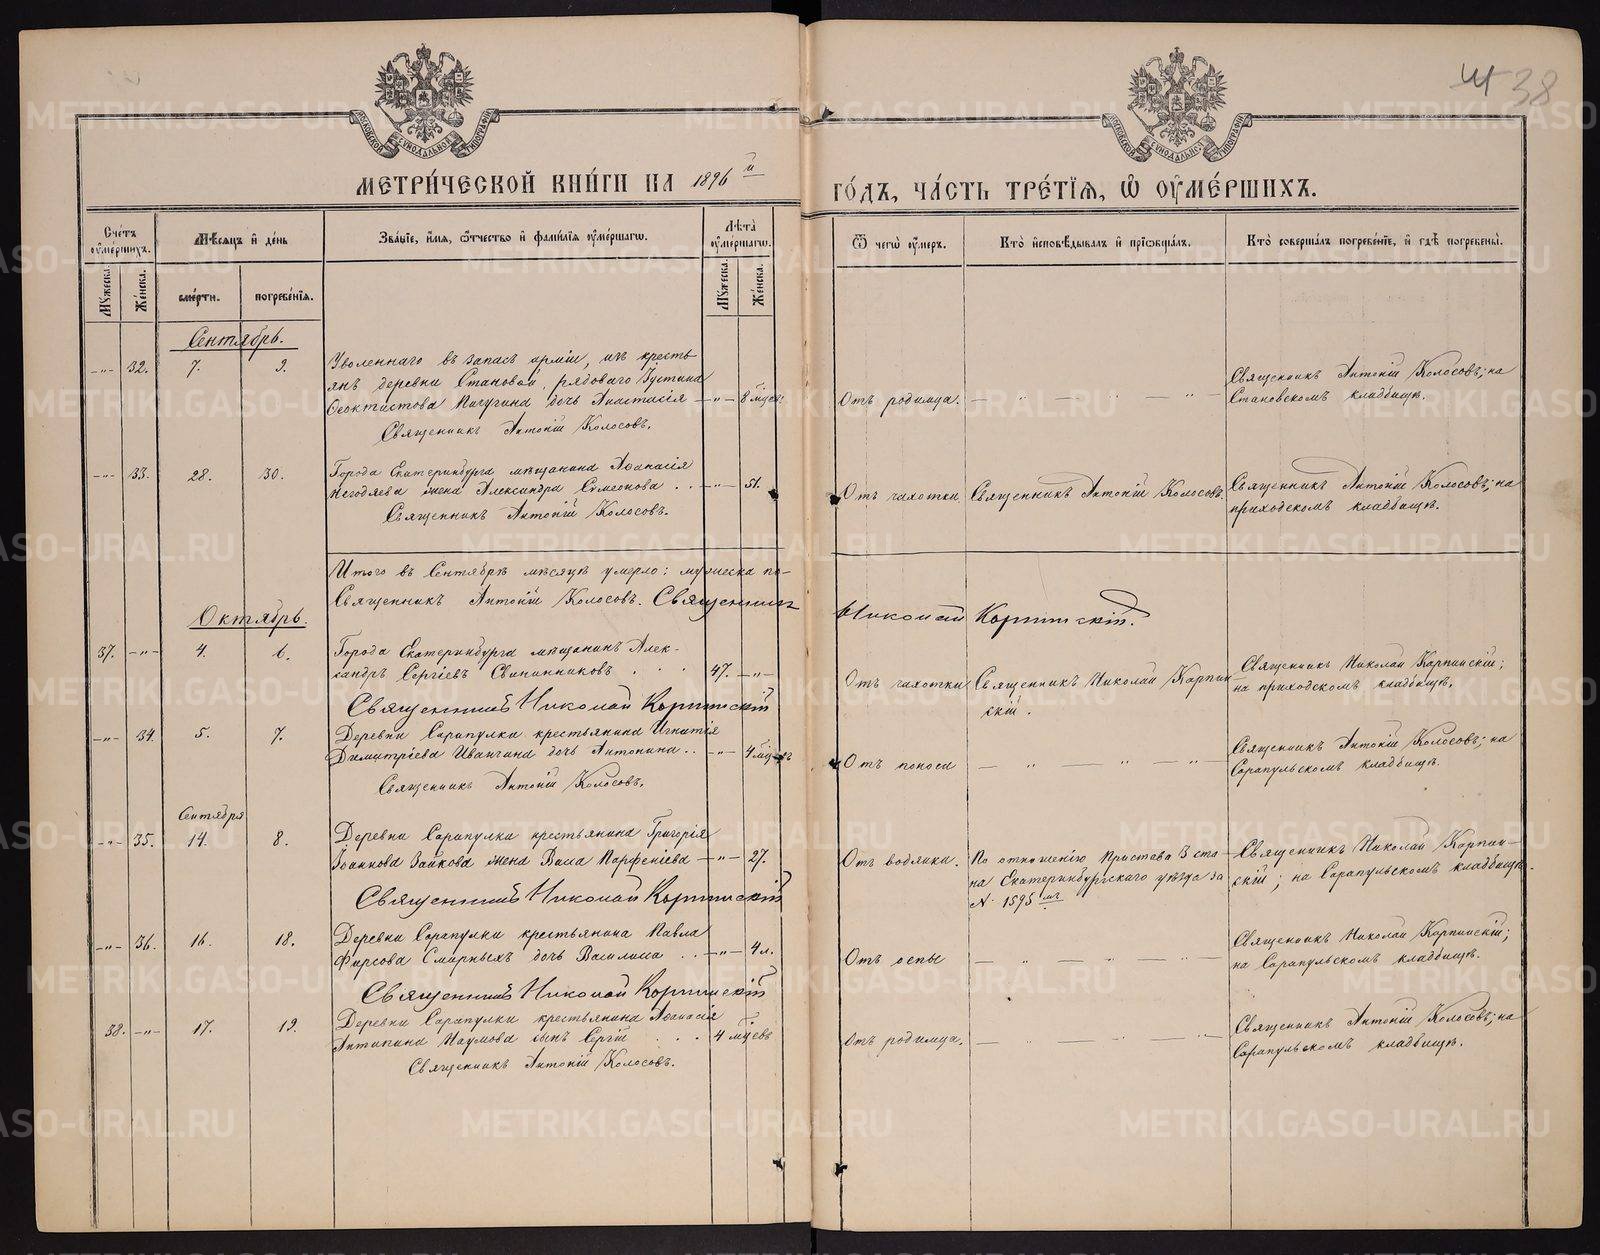 Ш 38
МОСКОВСКОЙ СѴНОДАЛЬНОЙ ТИПОГРАФІИ
МОСКОВСКОЙ СѴНОДАЛЬНОЙ ТИПОГРАФІИ
МЕТРИ́ЧЕСКОЙ КНИ́ГИ НА 1896й ГО́ДЪ, ЧА́СТЬ ТРЕ́ТІѦ, Ѽ ОУМЕ́РШИХЪ.
Сче́тъ оумершихъ.
Му́жеска.
Же́нска.
Мѣсяцъ и де́нь
сме́рти.
погребе́нїя.
Зва́нїе, и́мя, ѻ҆́тчество и фами́лїя оуме́ршагѡ.
Лѣта̀ оуме́ршагѡ.
Му́жеска.
Же́нска.
Ѿ чегѡ̀ оу́меръ.
Кто̀ и҆сповѣ́дывалъ и прїѡбща́лъ.
Кто̀ соверша́лъ погребе́нїе, и гдѣ̀ погребены̀.
Сентябрь.
-"- 32. 7. 9. Уволеннаго въ запасъ арміи, изъ кресть-
янъ деревни Становой, рядоваго Іустина
Ѳеоктистова Пичугина дочь Анастасія -"- 8 мцев.
Священникъ Антоній Колосовъ.
Отъ родимца. — " — " — " —
Священникъ Антоній Колосовъ; на
Становскомъ кладбищѣ.
-"- 33. 28. 30. Города Екатеринбурга мѣщанина Аѳанасія
Негодяева жена Александра Симеонова . . -"- 51.
Священникъ Антоній Колосовъ.
Отъ чахотки Священникъ Антоній Колосовъ.
Священникъ Антоній Колосовъ; на
приходскомъ кладбищѣ.
Итого въ Сентябрѣ мѣсяцѣ умерло: мужеска по-
Священникъ Антоній Колосовъ. Священникъ Николай Карпинскій.
Октябрь.
37. -"- 4. 6. Города Екатеринбурга мѣщанинъ Алек-
сандръ Сергіевъ Свининниковъ . . . 47. -"-
Священникъ Николай Карпинскій
Отъ чахотки Священникъ Николай Карпин-
скій.
Священникъ Николай Карпинскій;
на приходскомъ кладбищѣ.
-"- 34. 5. 7. Деревни Сарапулки крестьянина Игнатія
Димитріева Ивангина дочь Антонина . . -"- 4 мцевъ
Священникъ Антоній Колосовъ.
Отъ поноса — " — " — " —
Священникъ Антоній Колосовъ; на
Сарапульскомъ кладбищѣ.
Сентября
-"- 35. 14. 8. Деревни Сарапулки крестьянина Григорія
Іоаннова Зайкова жена Васса Парфеніева -"- 27.
Священникъ Николай Карпинскій
Отъ водянки. По отношенію Пристава 3 ста-
на Екатеринбургскаго уѣзда за
№ 1595мъ
Священникъ Николай Карпин-
скій; на Сарапульскомъ кладбищѣ.
-"- 36. 16. 18. Деревни Сарапулки крестьянина Павла
Фирсова Смирныхъ дочь Василиса . . -"- 4 л.
Священникъ Николай Карпинскій
Отъ оспы — " — " — " —
Священникъ Николай Карпинскій;
на Сарапульскомъ кладбищѣ.
38. -"- 17. 19. Деревни Сарапулки крестьянина Аѳанасія
Антипина Наумова сынъ Сергій . . . 4 мцевъ
Священникъ Антоній Колосовъ.
Отъ родимца. — " — " — " —
Священникъ Антоній Колосовъ; на
Сарапульскомъ кладбищѣ.
METRIKI.GASO-URAL.RU